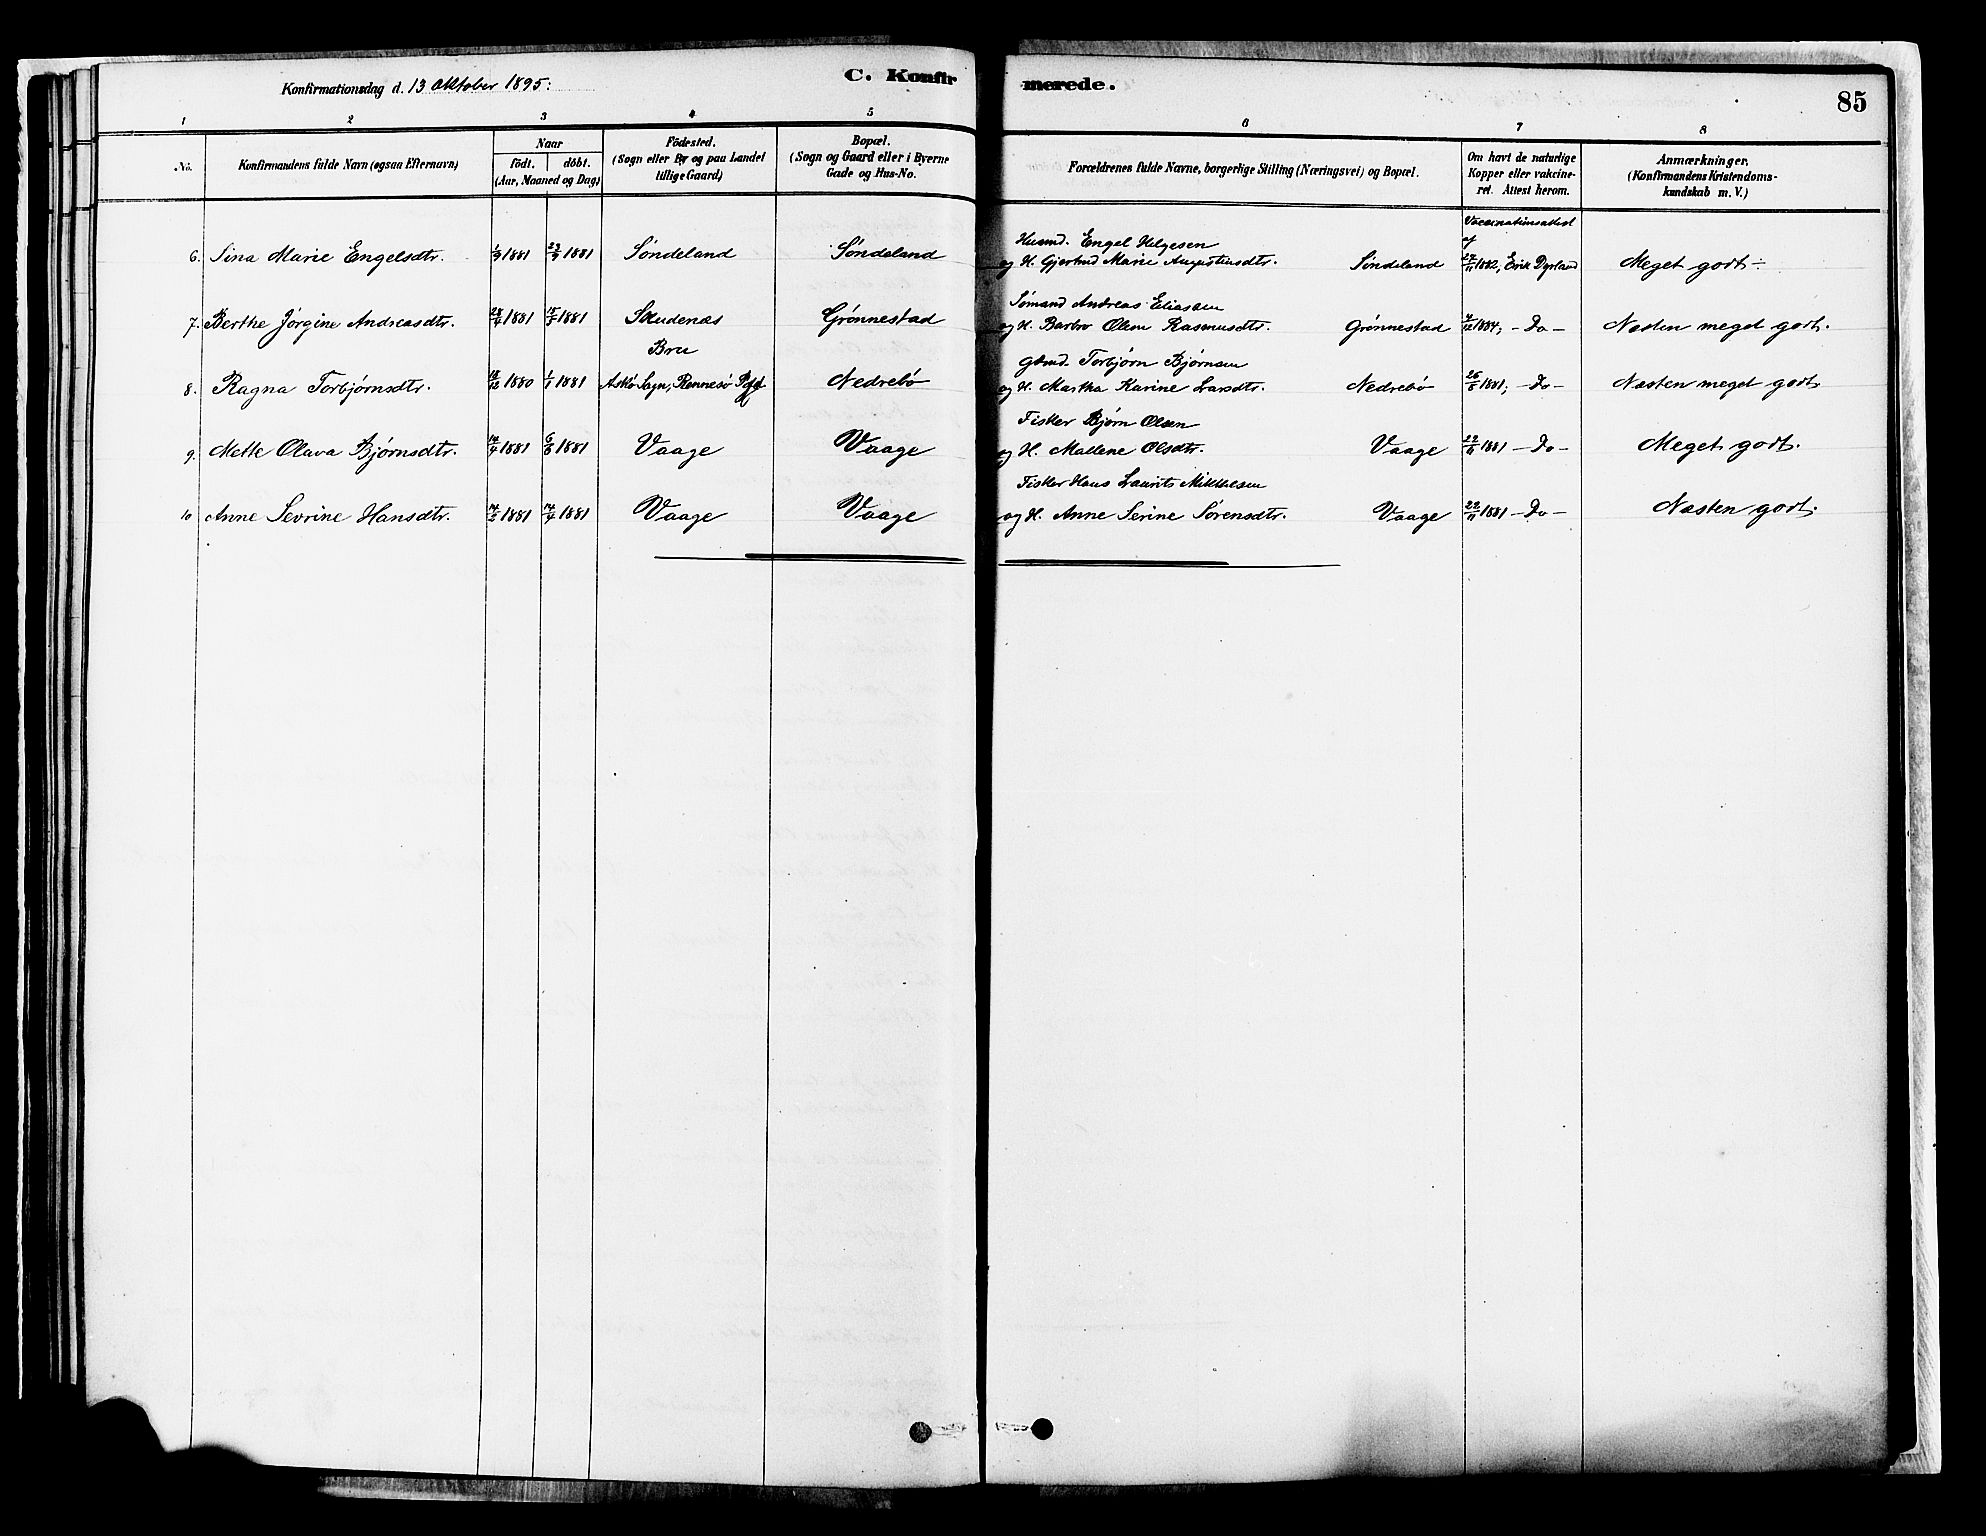 C. Konfirmerede.
85
Konfirmationsdag d. 13 Oktober 1895:
1 2 3 4 5 6 7 8
No.
Konfirmandens fulde Navn (ogsaa Efternavn)
Naar
födt. döbt.
(Aar, Maaned og Dag)
Födested.
(Sogn eller By og paa Landet
tillige Gaard)
Bopæl.
(Sogn og Gaard eller i Byerne
Gade og Hus-No.
Forældrenes fulde Navne, borgerlige Stilling (Næringsvei) og Bopæl.
Om havt de naturlige
Kopper eller vakcine-
ret. Attest herom.
Anmærkninger.
(Konfirmandens Kristendoms-
kundskab m. V.)
Vaccinationsattest
Husmd. Engel Helgesen
af
6. Sina Marie Engelsdtr. 1/3 1881 27/3 1881 Søndeland Søndeland og H. Gjertrud Marie Augustinusdtr. Søndeland 27/11 1882, Erik Dyrland Meget godt
Sømand Andreas Eliassen
7. Berthe Jørgine Andreasdtr. 23/4 1881 1881 Skudenæs Grønnestad og H. Barbro Olene Rasmusdtr. Grønnestad 1884, -Do- Næsten meget godt.
Bru
Gbmd. Torbjørn Bjørnsen
8. Ragna Torbjørnsdtr. 18/12 1880 1/1 1881 Askø Sogn, Rennesø Pgjd Nedrebø og H. Martha Karine Larsdtr. Nedrebø 26/8 1881, -Do- Næsten meget godt
Fisker Bjørn Olsen
9. Mette Olava Bjørnsdtr. 14/4 1881 6/6 1881 Vaage Vaage og H. Mallene Olsdtr. Vaage 22/11 1881 -Do- Meget godt.
Fisker Hans Laurits Mikkelsen
10 Anne Sevrine Hansdtr. 1881 1881 Vaage Vaage og H. Anne Serine Sørensdtr. Vaage 22/11 1881 -Do- Næsten godt.